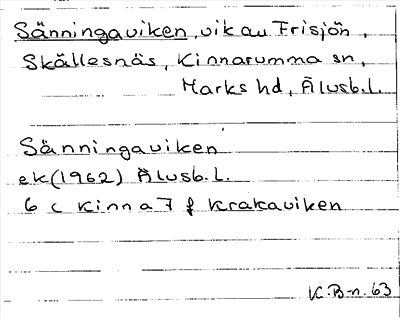 Sänningaviken, vik av Frisjön,
Skällesnäs, Kinnarumma sn,
Marks hd, Älvsb.l.
Sänningaviken
ek(1962) Älvsb.l.
6 c Kinna 7 f Krakaviken
K.B-n. 63